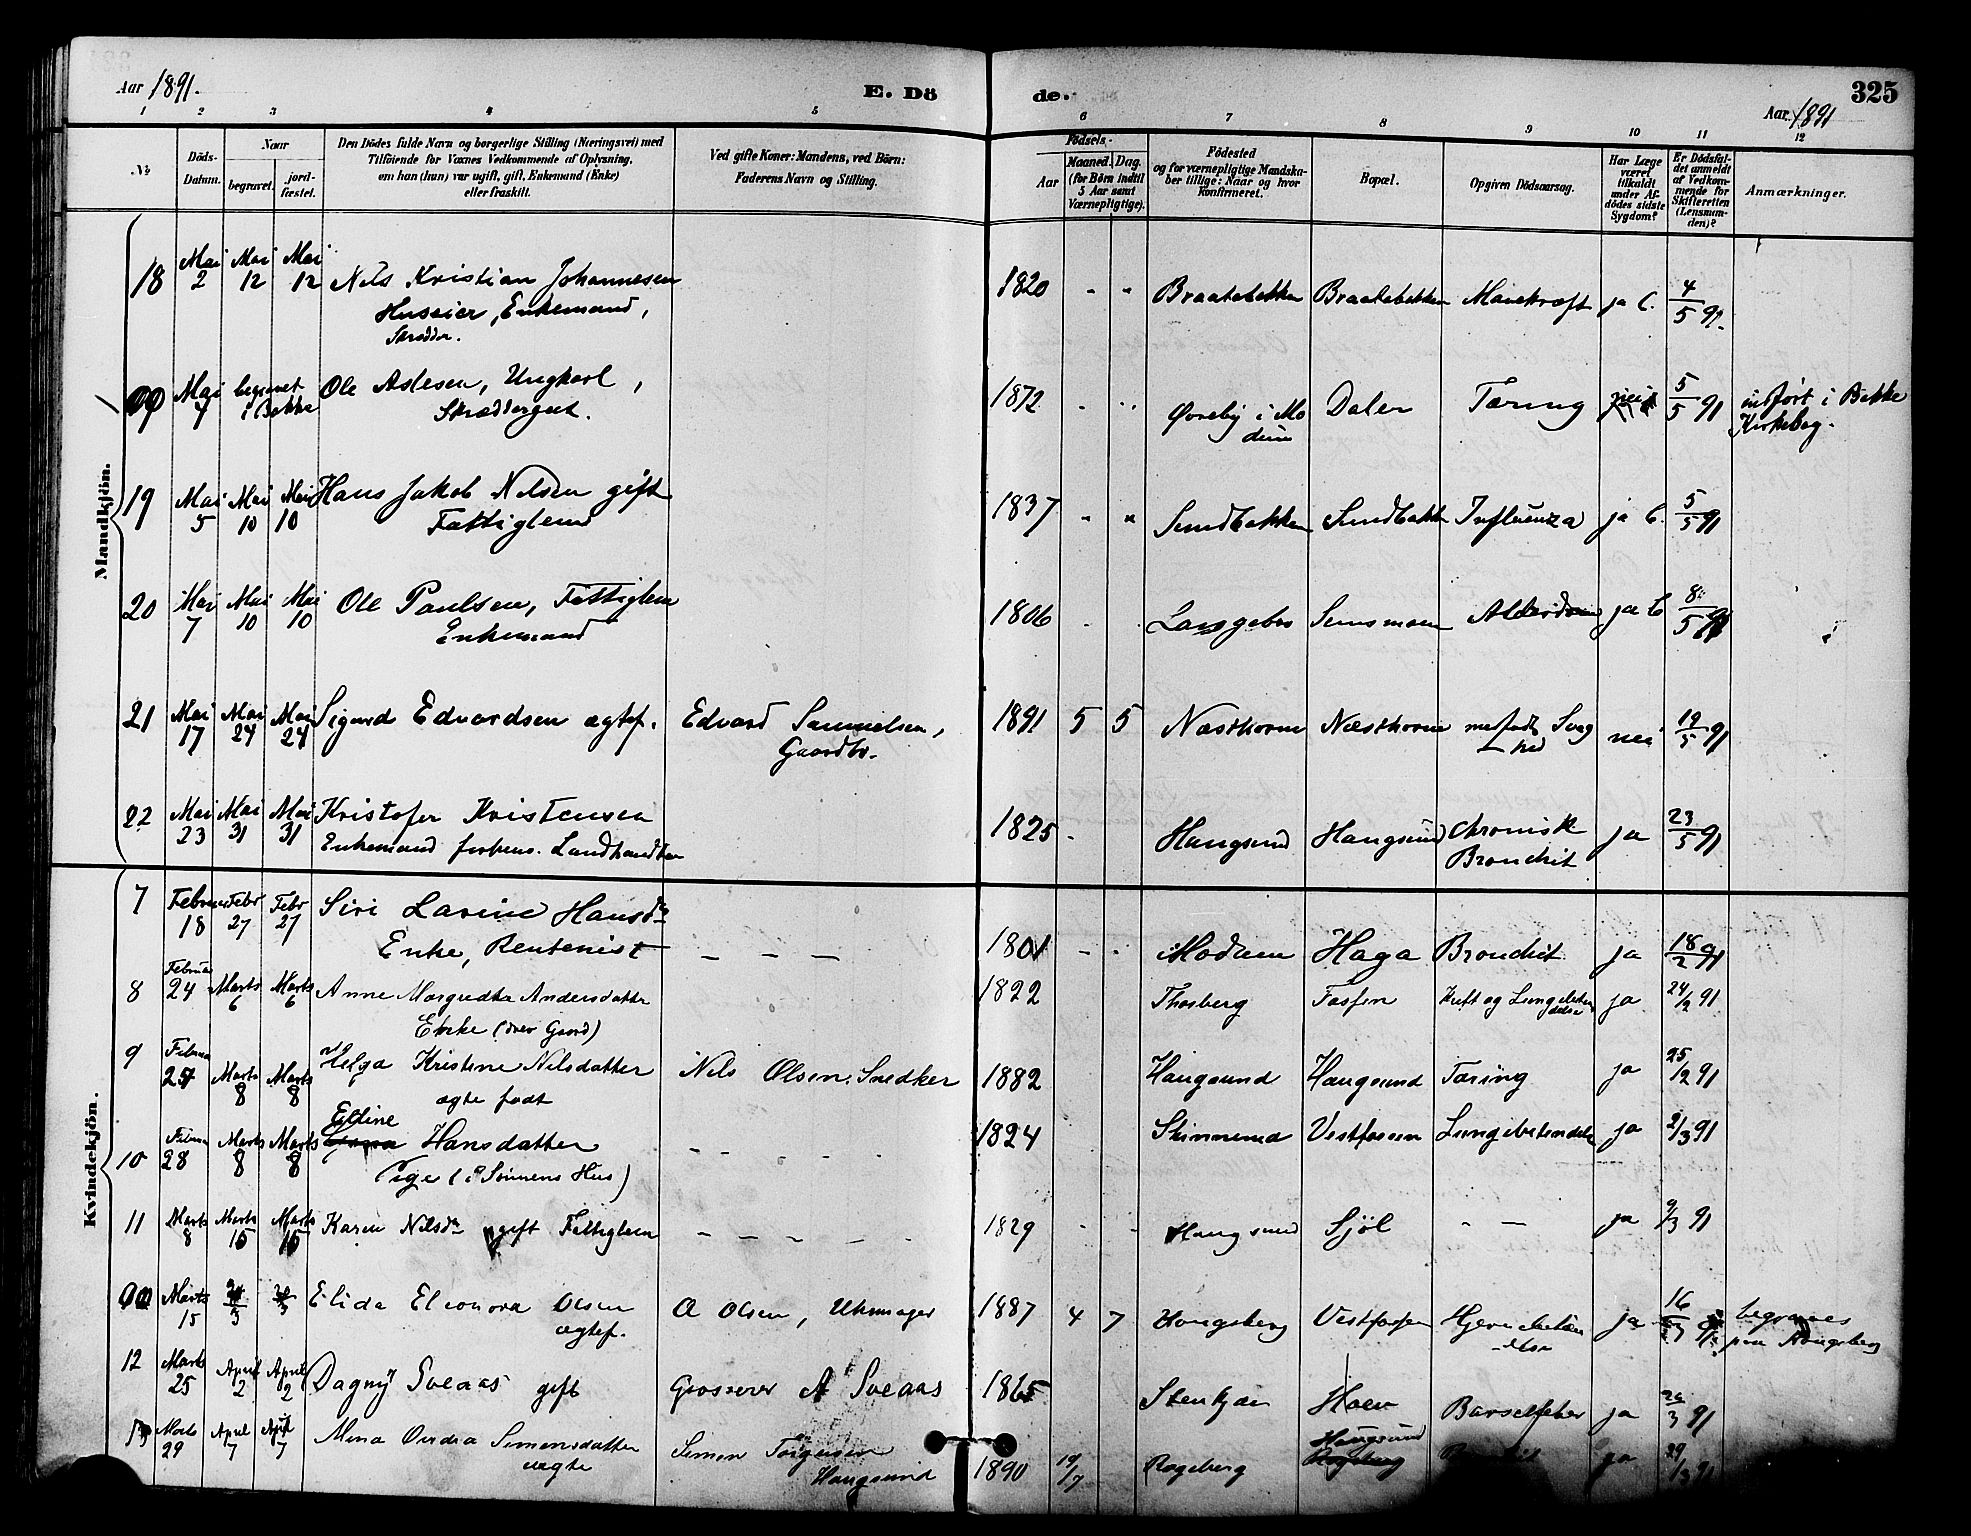 Aar 1891.
E. Dö
de.
325
Aar 1891
1 2 3 4 5 6 7 8 9 10 11 12
No.
Döds-Datum.
Naar
begravet.
jordfæstet.
Den Dödes fulde Navn og borgerlige Stilling (Næringsvei) med
Tilföiende for Voxnes Vedkommende af Oplysning,
om han (hun) var ugift, gift, Enkemand (Enke)
eller fraskilt.
Ved gifte Koner: Mandens, ved Börn:
Faderens Navn og Stilling.
Födsels-
Aar
Maaned. Dag.
(for Börn indtil
5 Aar samt
Værnepligtige).
Födested
og for værnepligtige Mandska-
ber tillige: Naar og hvor
Konfirmeret.
Bopæl.
Opgiven Dödsaarsag.
Har Læge
været
tilkaldt
under Af-
dödes sidste
Sygdom?
Er Dödsfal-
det anmeldt
af Vedkom-
mende for
Skifteretten
(Lensman-
den)?
Anmærkninger.
Mandkjön.
18 Mai 2 Mai 12 Mai 12 Nils Kristian Johannesen 1820 - " Braatebakken Braatebakken Mavekræft ja C. 4/5 91.
Huseier, Enkemand,
Skrædder.
00 Mai 4 begravet i Bakke Ole Aslesen, Ungkarl, 1872 - " Øvreby i Modum Daler Tæring nei 5/5 91 indført i Bakke
Skræddergut. Kirkebog.
19 Mai 5 Mai 10 Mai 10 Hans Jakob Nilsen gift 1837 - " Sundbakken Sundbakk Influenza ja C. 5/5 91
Fattiglem
20 Mai 7 Mai 10 Mai 10 Ole Paulsen, Fattiglem 1806 - . Langebro Semsmoen ja C 8/5 91
Enkemand
21 Mai 17 Mai 24 Mai 24 Sigurd Edvardsen ægtef. Edvard Samuelsen, 1891 5 5 Næsthorne Næsthorne medfødt Svag nei 19/5 91
Gaardbr. hed
22 Mai 23 Mai 31 Mai 31 Kristofer Kristensen 1825 - Haugsund Haugsund chronisk ja 23/5 91
Enkemand forhens. Landhandler Bronchit
Kvindekjön.
7 Februar 18 Febr 27 Febr 27 Siri Larine Hansdr
Enke, Rentenist — — — 1801 - - Modum Haga Bronchit ja 18/2 91
8 Februar 24 Marts 6 Marts 6 Anne Margrethe Andersdatter 1822 Thosberg Fosfen ja 24/2 91
Enke (drev Gaard)
9 Februar 25 Marts 8 Marts 8 Helga Kristine Nilsdatter Nils Olsen. Snedker 1882 Haugsund Haugsund Tæring ja 25/2 91
ægte født
10 Februar 28 Marts 8 Marts 8 Eline Hansdatter - - - - 1824 Skinnerud Vestfossen Lungebetendelse ja 2/3 91
Pige (i Sønnens Hus)
11 Marts 8 Marts 15 Marts 15 Karen Nilsdr gift Fattiglem - - - - 1829 - - Haugsund Sjöl - — ja 9/3 91
00 Marts 15 Elida Eleonora Olsen O Olsen, Uhrmager 1887 4 7 Kongsberg Vestfossen Hjernebetæn ja 16/3 91 begraves
ægtef. delse paa Kongsberg
12 Marts 25 April 2 April 2 Dagny Sveaas gift Grosserer A Sveaas 1865 Stenkjær Hoen Barselfeber ja 26/3 91
13 Marts 29 April 7 April 7 Mina Simensdatter Simen Torgersen 1890 19/7 Rogeberg Haugsund ja 29/3 91
uægte Haugsund